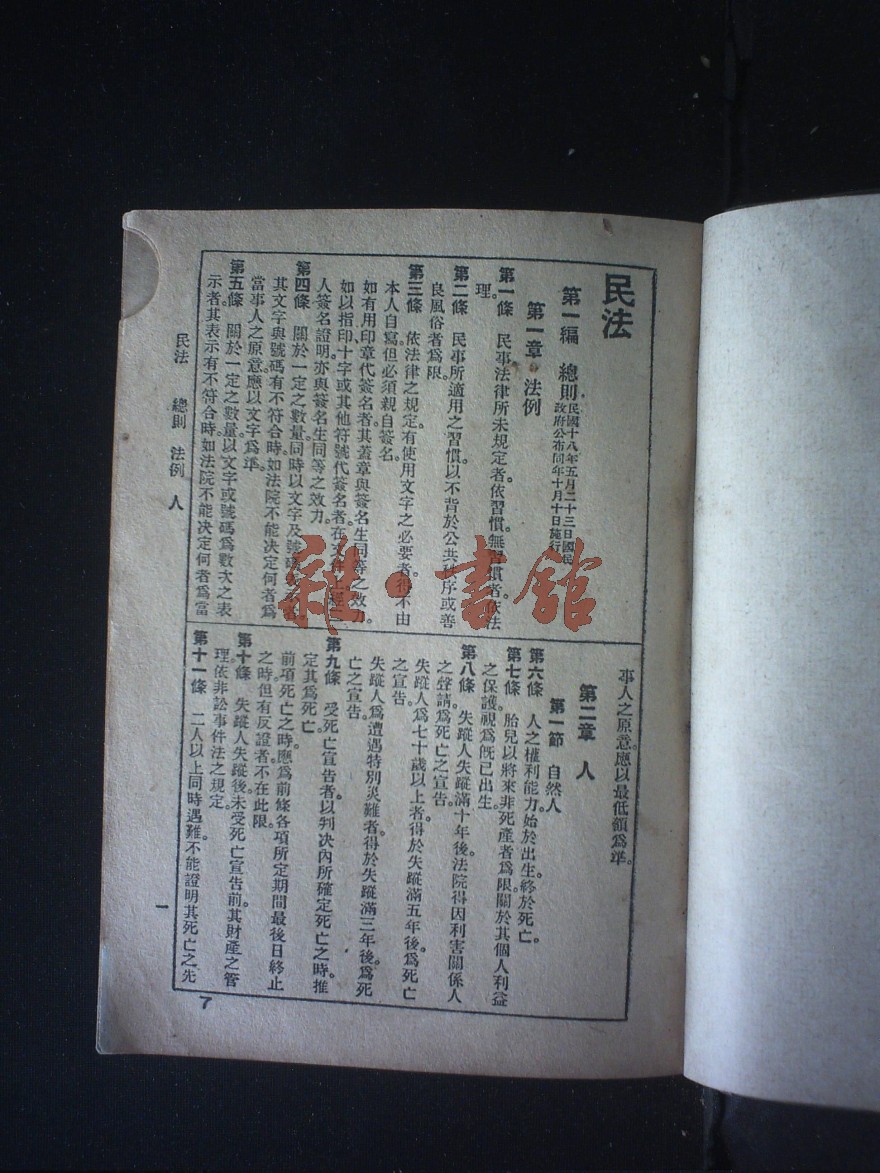 民法
第一編　總則 民國十八年五月二十三日國民
政府公布同年十月十日施行
第一章　法例
第一條　民事法律所未規定者依習慣。無習慣者依法
理。
第二條　民事所適用之習慣。以不背於公共秩序或善
良風俗者爲限。
第三條　依法律之規定有使用文字之必要者得不由
本人自寫但必須親自簽名。
如有用印章代簽名者。其蓋章與簽名生同等之效力。
如以指印十字或其他符號代簽名者在文件上經二
人簽名證明亦與簽名生同等之效力。
第四條　關於一定之數量同時以文字及號碼表示者
其文字與號碼有不符合時如法院不能決定何者爲
當事人之原意應以文字爲準。
第五條　關於一定之數量以文字或號碼爲數次之表
示者其表示有不符合時如法院不能決定何者爲當
事人之原意。應以最低額爲準。
第二章　人
第一節　自然人
第六條　人之權利能力。始於出生終於死亡。
第七條　胎兒以將來非死產者爲限。關於其個人利益
之保護視爲既已出生。
第八條　失蹤人失蹤滿十年後。法院得因利害關係人
之聲請爲死亡之宣告。
失蹤人爲七十歲以上者得於失蹤滿五年後。爲死亡
之宣告。
失蹤人爲遭遇特別災難者。得於失蹤滿三年後。爲死
亡之宣告。
第九條　受死亡宣告者以判決內所確定死亡之時。推
定其爲死亡。
前項死亡之時應爲前條各項所定期間最後日終止
之時但有反證者不在此限。
第十條　失蹤人失蹤後。未受死亡宣告前。其財產之管
理依非訟事件法之規定。
第十一條　二人以上同時遇難不能證明其死亡之先
民法　總則　法例　人
一
7
雜·書館